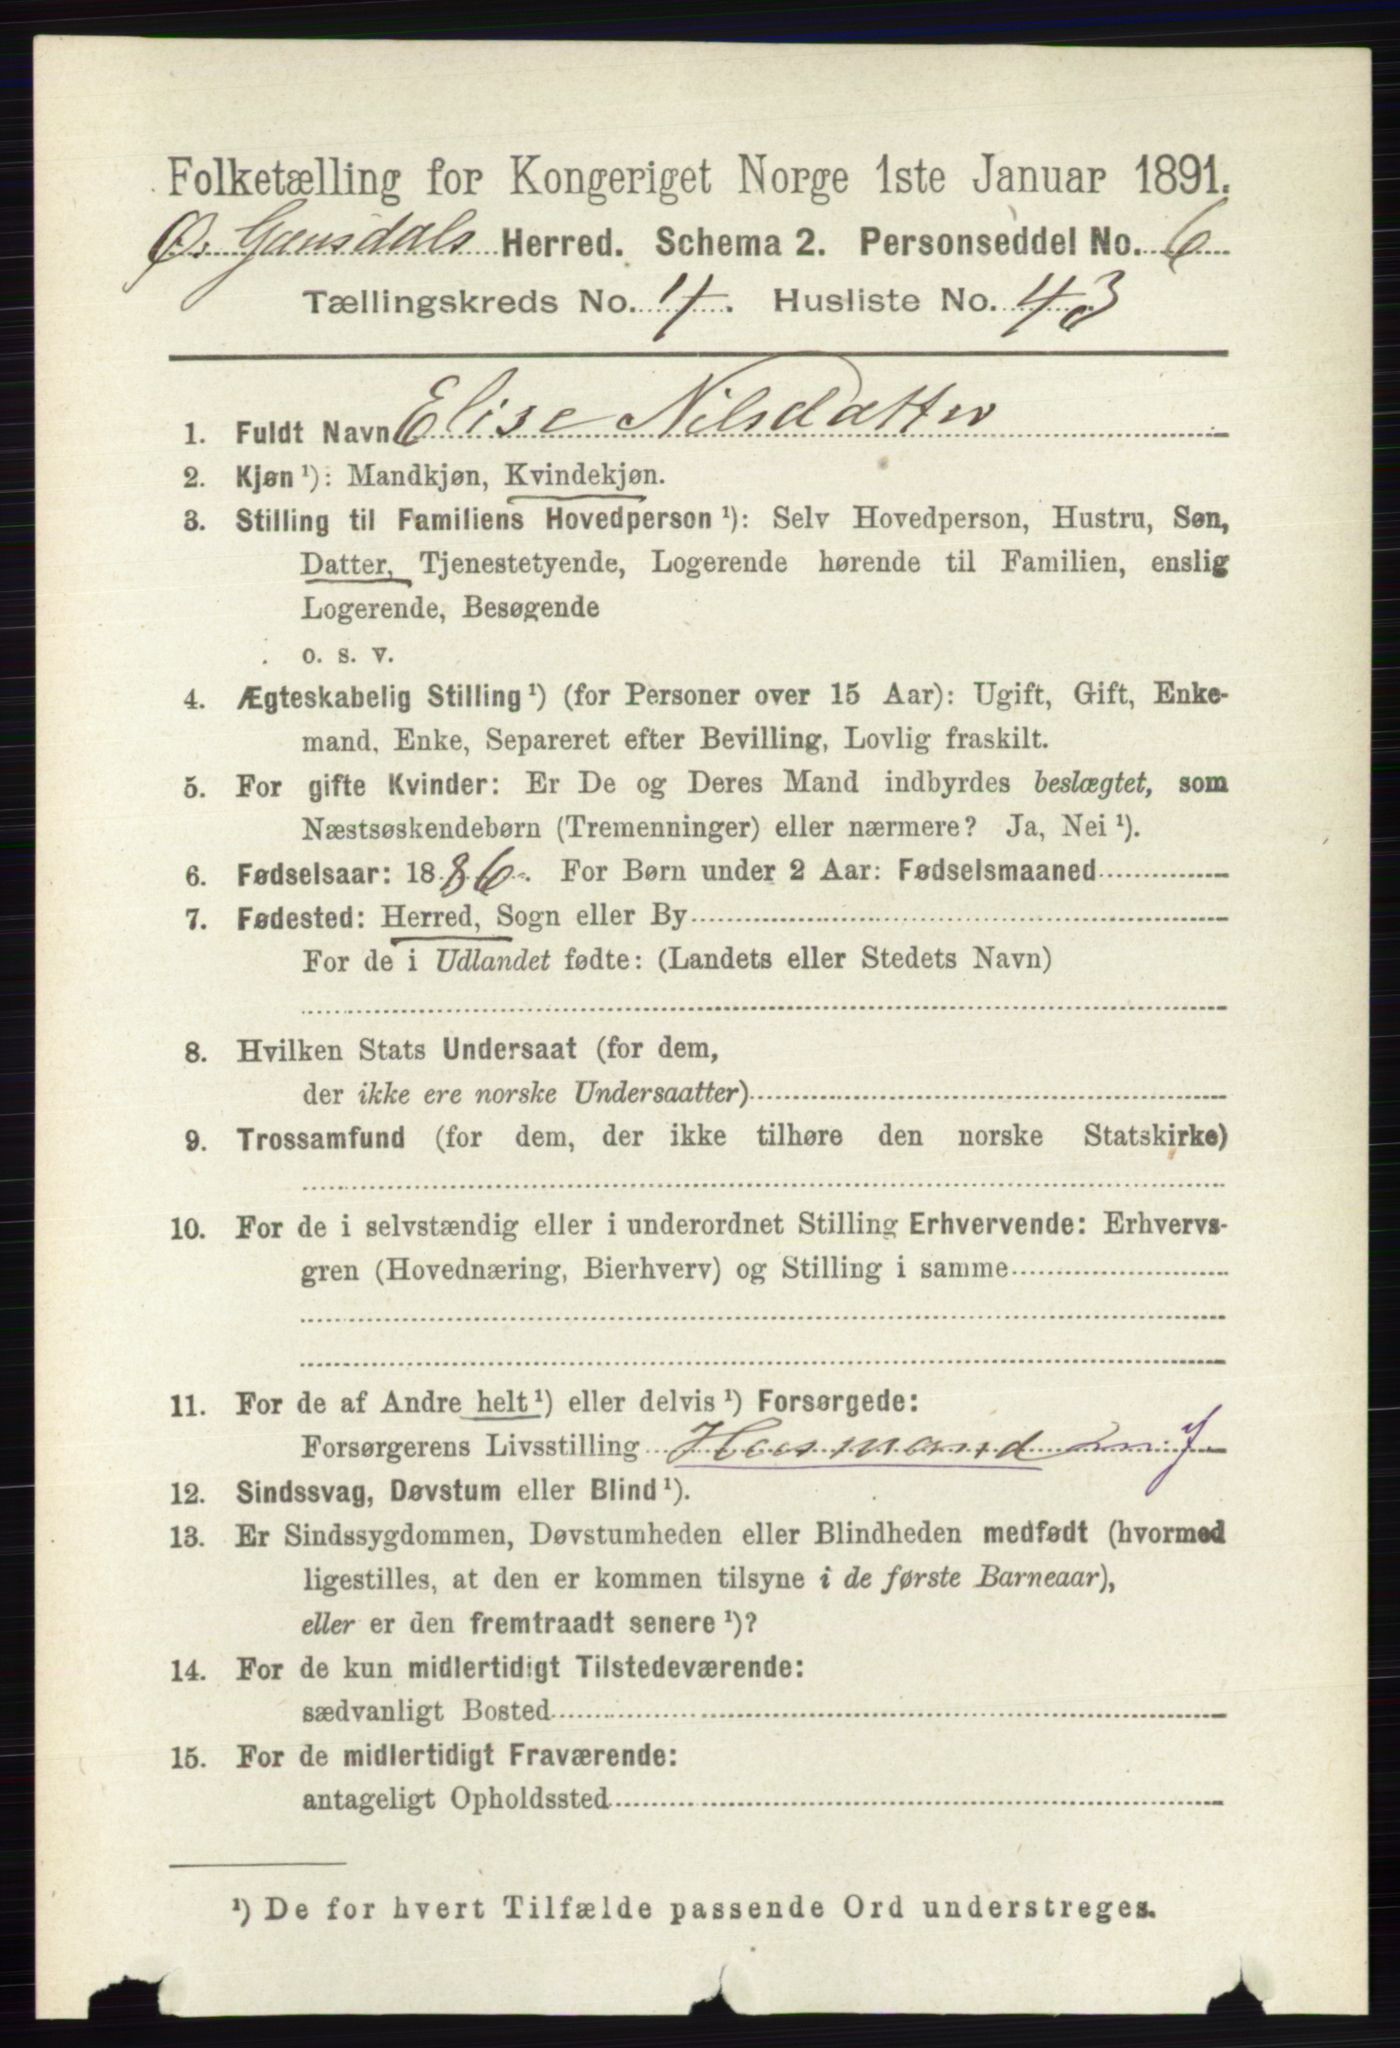 Folketælling for Kongeriget Norge 1ste Januar 1891.
Ø. Gausdals Herred. Schema 2. Personseddel No. 6
Tællingskreds No. 4. Husliste No. 43
1. Fuldt Navn Elise Nilsdatter
2. Kjøn ¹): Mandkjøn, Kvindekjøn.
3. Stilling til Familiens Hovedperson ¹): Selv Hovedperson, Hustru, Søn,
Datter, Tjenestetyende, Logerende hørende til Familien, enslig
Logerende, Besøgende
o. s. v.
4. Ægteskabelig Stilling ¹) (for Personer over 15 Aar): Ugift, Gift, Enke-
mand, Enke, Separeret efter Bevilling, Lovlig fraskilt.
5. For gifte Kvinder: Er De og Deres Mand indbyrdes beslægtet, som
Næstsøskendebørn (Tremenninger) eller nærmere? Ja, Nei ¹).
6. Fødselsaar: 1886. For Børn under 2 Aar: Fødselsmaaned
7. Fødested: Herred, Sogn eller By
For de i Udlandet fødte: (Landets eller Stedets Navn)
8. Hvilken Stats Undersaat (for dem,
der ikke ere norske Undersaatter)
9. Trossamfund (for dem, der ikke tilhøre den norske Statskirke)
10. For de i selvstændig eller i underordnet Stilling Erhvervende: Erhvervs-
gren (Hovednæring, Bierhverv) og Stilling i samme
11. For de af Andre helt ¹) eller delvis ¹) Forsørgede:
Forsørgerens Livsstilling Husmand m. J
12. Sindssvag, Døvstum eller Blind ¹).
13. Er Sindssygdommen, Døvstumheden eller Blindheden medfødt (hvormed
ligestilles, at den er kommen tilsyne i de første Barneaar),
eller er den fremtraadt senere ¹)?
14. For de kun midlertidigt Tilstedeværende:
sædvanligt Bosted
15. For de midlertidigt Fraværende:
antageligt Opholdssted
¹) De for hvert Tilfælde passende Ord understreges.